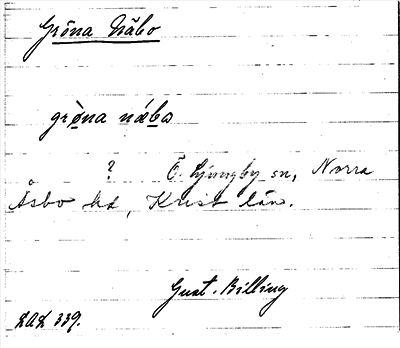 Gröna Näbo
gröna näbo
? Ö. Ljungby sn, Norra
Åsbo hd, Krist. län.
Gust. Billing
LAL 339.